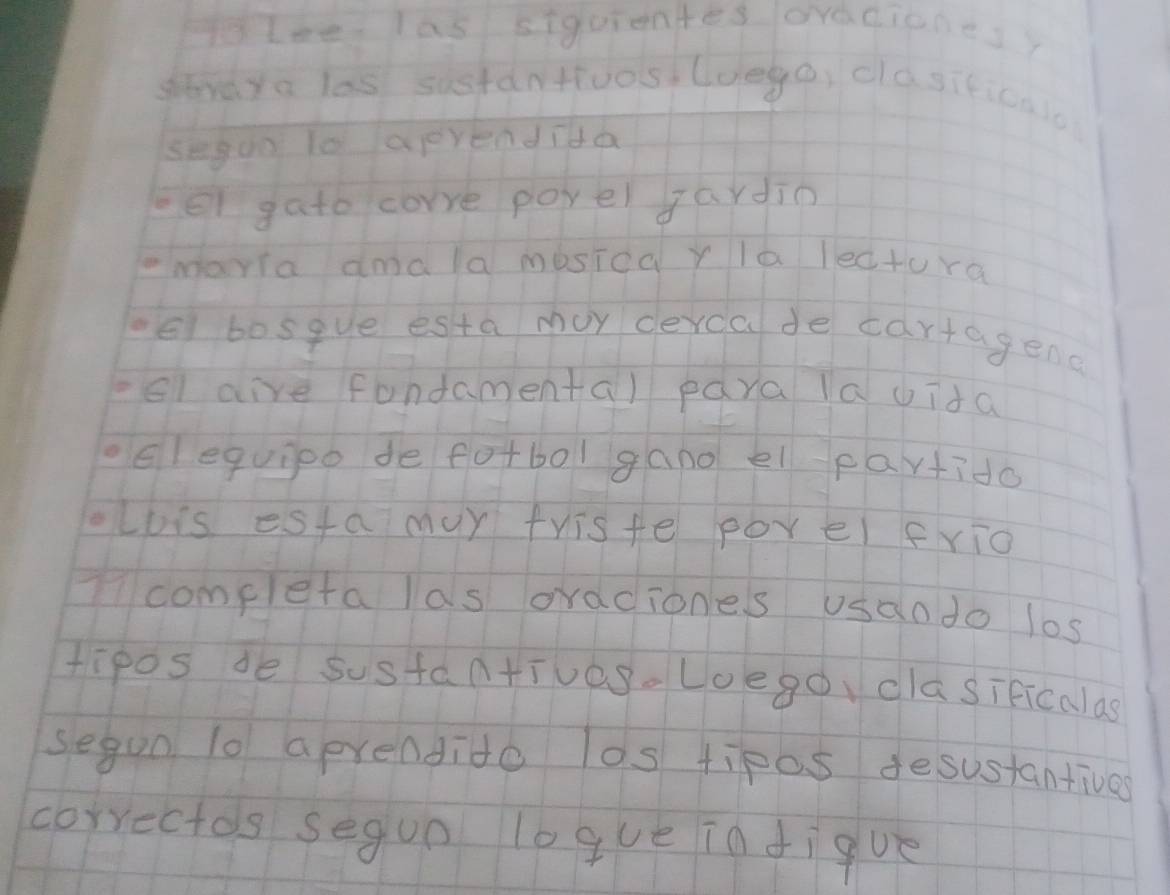 Lee las siguientes oraciones y
subraya los sustantivos. Luego, clasificalo
segun lo aprendida
• El gato corre por el jardin
• maria ama la musica y la lectura
• El bosque esta muy cerca de cartagena
• El aire fundamental para la vida
• El equipo de futbol gano el partido
• Luis esta muy triste por el frio
completa las oraciones usando los
tipos de sustantivos. Luego, clasificalas
segun lo aprendido los tipos de sustantivos
correctos segun lo que indique